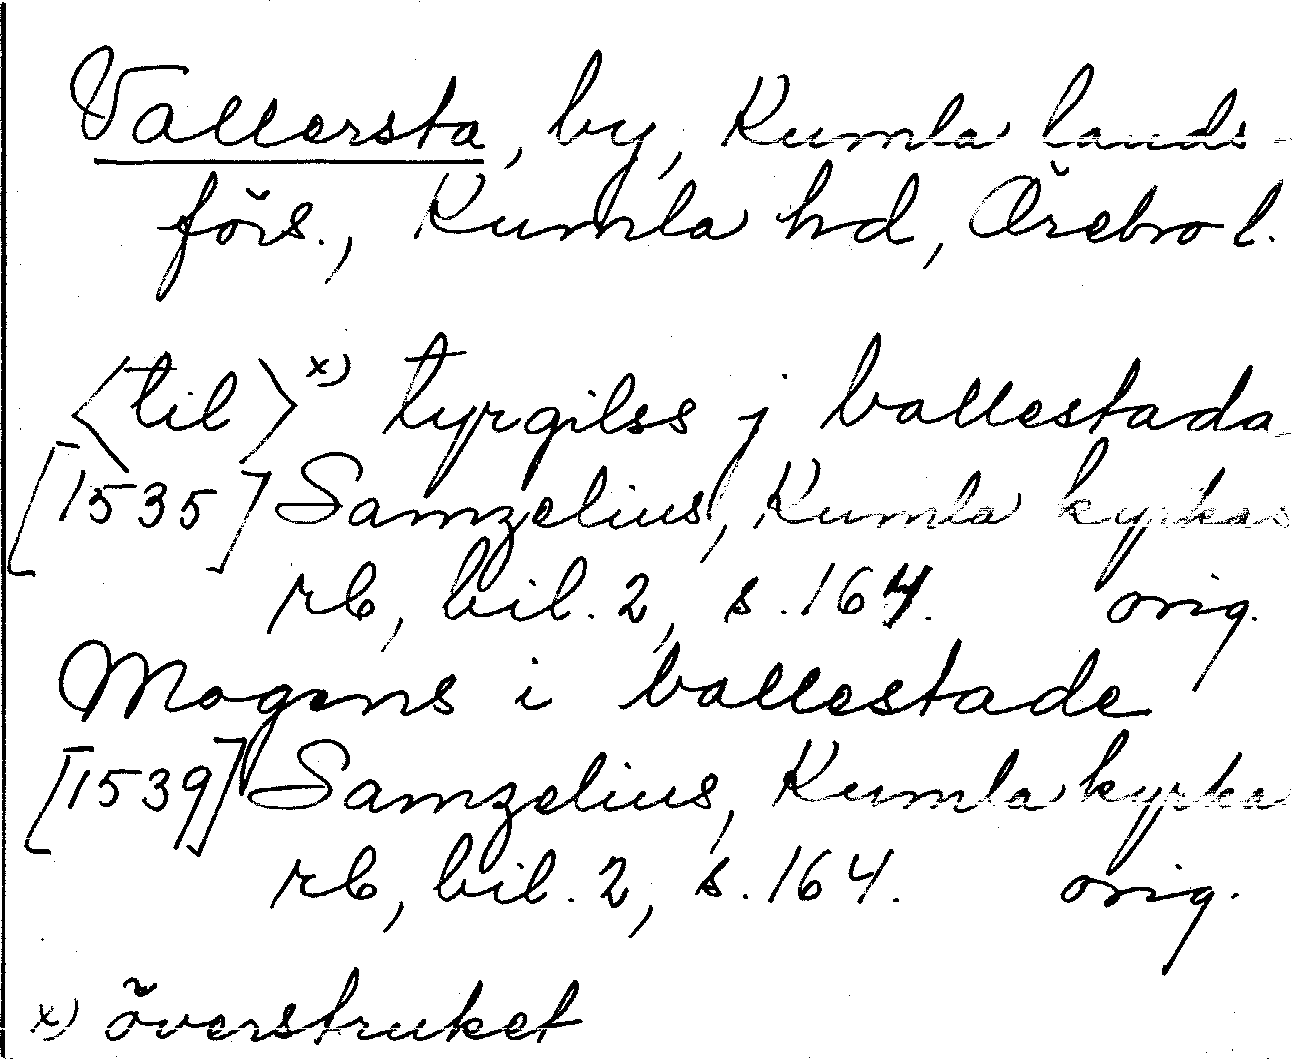 Vallersta, by, Kumla lands-
förs., Kumla hd, Örebro l.
<til> x) tyrgilss j vallestada
[1535] Samzelius, Kumla kyrkas
rb, bil. 2, s. 164. orig.
Mogens i vallestade
[1539] Samzelius, Kumla kyrka
rb, bil. 2, s. 164. orig.
x) överstruket